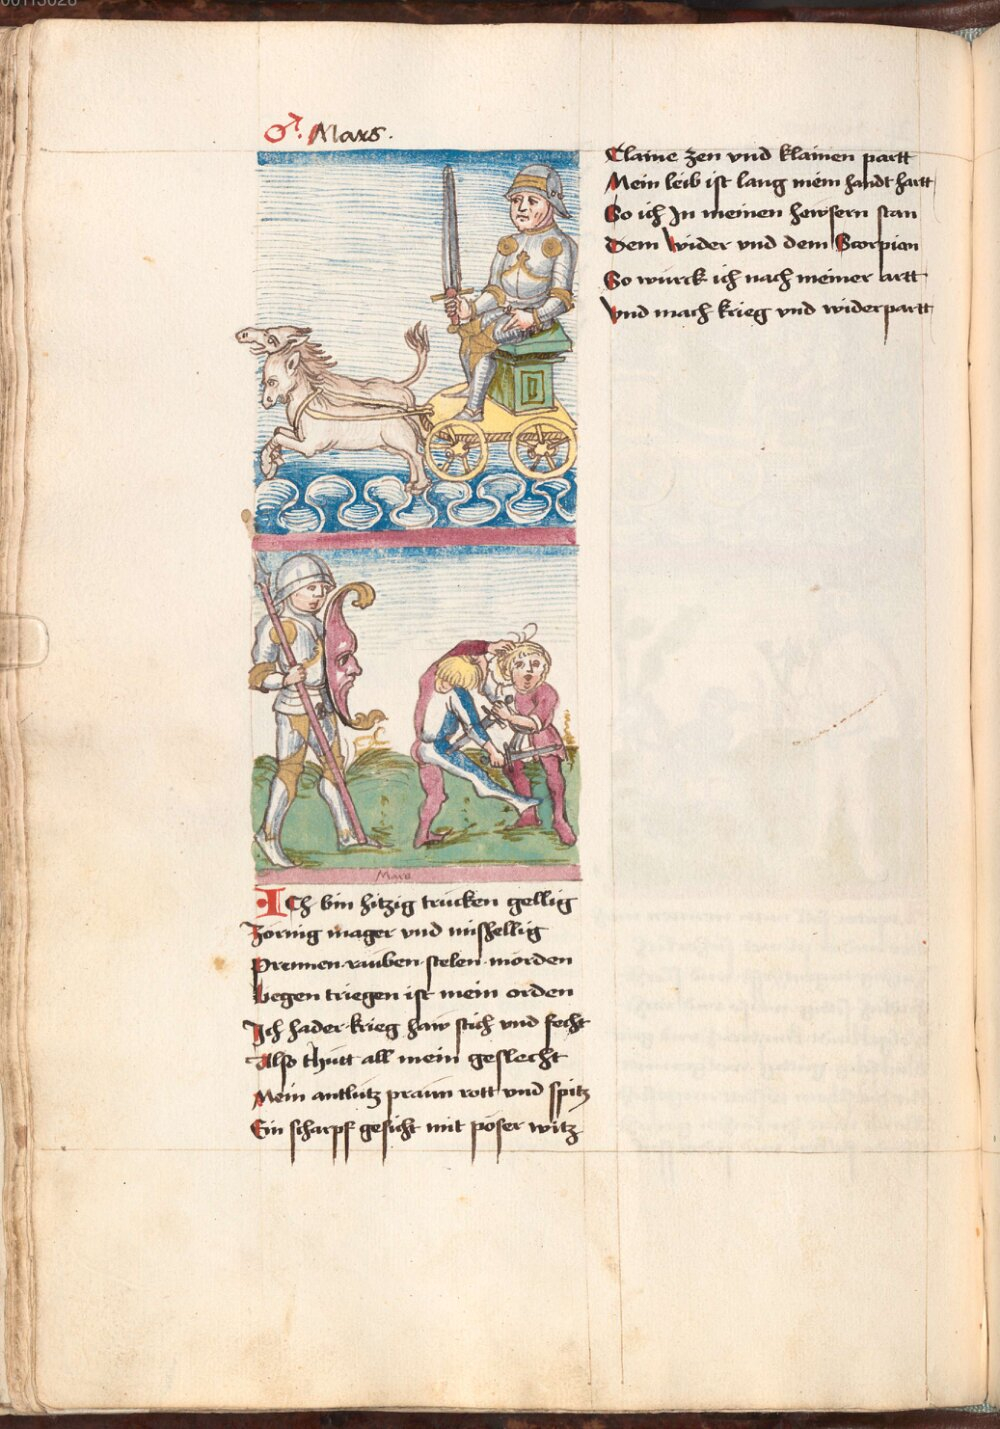 00113028
♂ Mars.
Mars
ICh bin hitzig trucken gellig
Zornig mager vnd mishellig
Prennen rauben stelen morden
Liegen triegen ist mein orden
Ich hader krieg haw stich vnd fecht
Also thutt all mein geslecht
Mein antlutz praun rott vnd spitz
Ein scharpf gesicht mit poser witz
Claine zen vnd klainen partt
Mein leib ist lang mein handt hartt
So ich In meinen hewsern stan
Dem wider vnd dem Scorpion
So wurck ich nach meiner artt
Vnd mach krieg vnd widerpartt